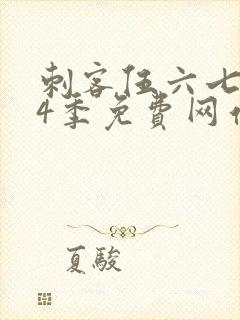 刺客伍六七
4季免費网
夏駿